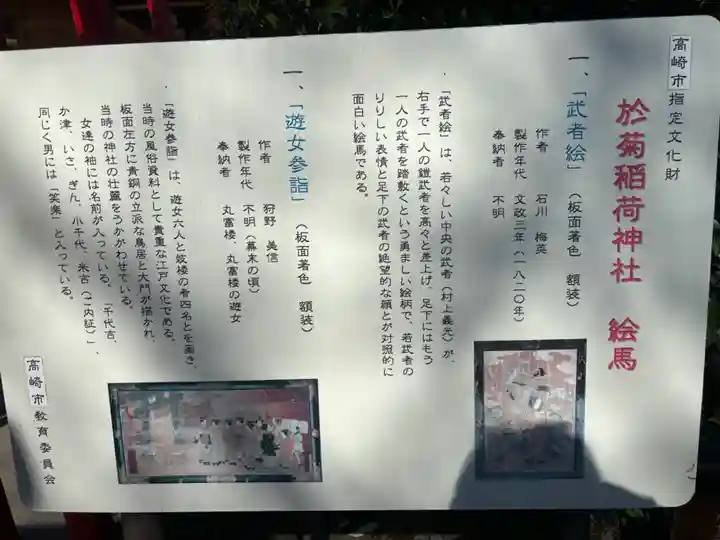 高崎市指定文化財
於菊稲荷神社 絵馬
一、「武者絵」（板面著色 額装）
作者 石川 梅英
製作年代 文政三年（一八二〇年）
奉納者 不明
「武者絵」は、若々しい中央の武者（村上義光）が、
右手で一人の鎧武者を高々と差上げ、足下にはもう
一人の武者を踏敷くという勇ましい絵柄で、若武者の
りりしい表情と足下の武者の絶望的な顔とが対照的に
面白い絵馬である。
一、「遊女参詣」（板面著色 額装）
作者 狩野 美信
製作年代 不明（幕末の頃）
奉納者 丸富楼、丸富楼の遊女
「遊女参詣」は、遊女六人と妓楼の者四名とを画き、
当時の風俗資料として貴重な江戸文化である。
板面左方に青銅の立派な鳥居と大門が描かれ、
当時の神社の壮麗をうかがわせている。
女達の袖には名前が入っている。「千代吉、
か津、いさ、ぎん、小千代、米古（ご内証）」、
同じく男には「笑楽」と入っている。
高崎市教育委員会